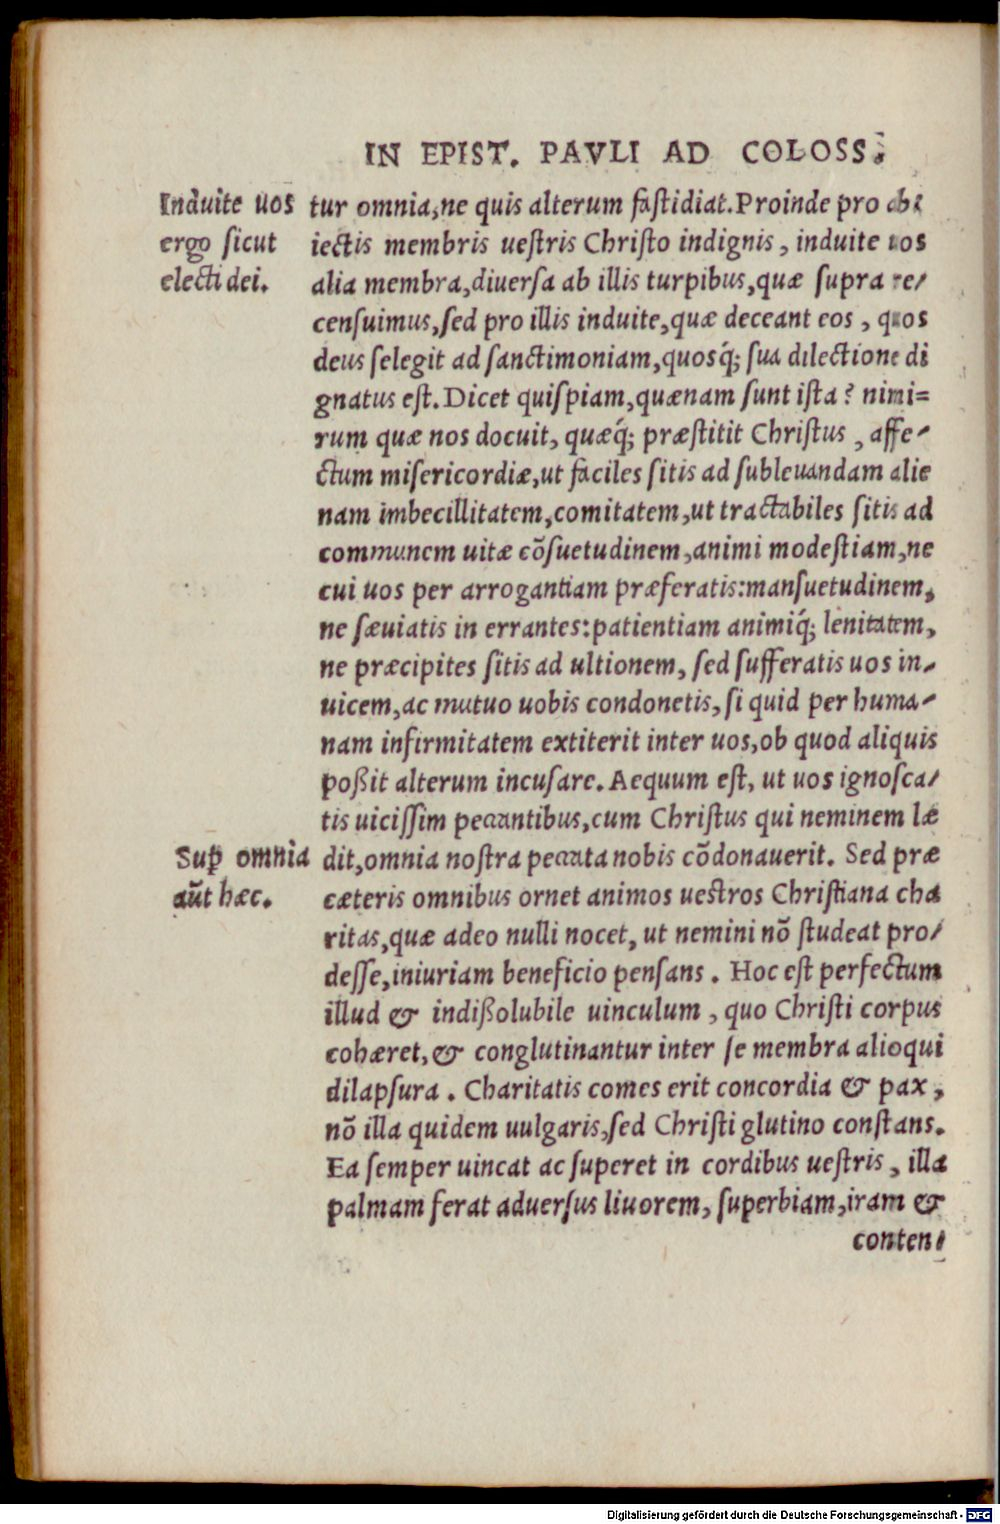 IN EPIST. PAVLI AD COLOSS.
Induite uos
ergo ſicut
electi dei.
tur omnia, ne quis alterum faſtidiat. Proinde pro ab
iectis membris ueſtris Chriſto indignis, induite uos
alia membra, diuerſa ab illis turpibus, quæ ſupra re/
cenſuimus, ſed pro illis induite, quæ deceant eos, quos
deus ſelegit ad ſanctimoniam, quosq́; ſua dilectione di
gnatus eſt. Dicet quiſpiam, quænam ſunt iſta? nimi=
rum quæ nos docuit, quæq́; præſtitit Chriſtus, affe/
ctum miſericordiæ, ut faciles ſitis ad ſubleuandam alie
nam imbecillitatem, comitatem, ut tractabiles ſitis ad
communem uitæ cõſuetudinem, animi modeſtiam, ne
cui uos per arrogantiam præferatis: manſuetudinem,
ne ſæuiatis in errantes: patientiam animiq́; lenitatem,
ne præcipites ſitis ad ultionem, ſed ſufferatis uos in/
uicem, ac mutuo uobis condonetis, ſi quid per huma/
nam infirmitatem extiterit inter uos, ob quod aliquis
poßit alterum incuſare. Aequum eſt, ut uos ignoſca/
tis uiciſſim peccantibus, cum Chriſtus qui neminem læ
Sup̃ omnia
aũt hæc.
dit, omnia noſtra peccata nobis cõdonauerit. Sed præ
cæteris omnibus ornet animos ueſtros Chriſtiana cha
ritas, quæ adeo nulli nocet, ut nemini nõ ſtudeat pro/
deſſe, iniuriam beneficio penſans. Hoc eſt perfectum
illud & indißolubile uinculum, quo Chriſti corpus
cohæret, & conglutinantur inter ſe membra alioqui
dilapſura. Charitatis comes erit concordia & pax,
nõ illa quidem uulgaris, ſed Chriſti glutino conſtans.
Ea ſemper uincat ac ſuperet in cordibus ueſtris, illa
palmam ferat aduerſus liuorem, ſuperbiam, iram &
conten/
Digitalisierung gefördert durch die Deutsche Forschungsgemeinschaft - DFG